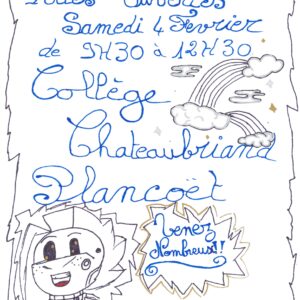 Portes Ouvertes
Samedi 4 Février
de 9H30 à 12H30
Collège
Chateaubriand
Plancoët
Venez
Nombreux!!